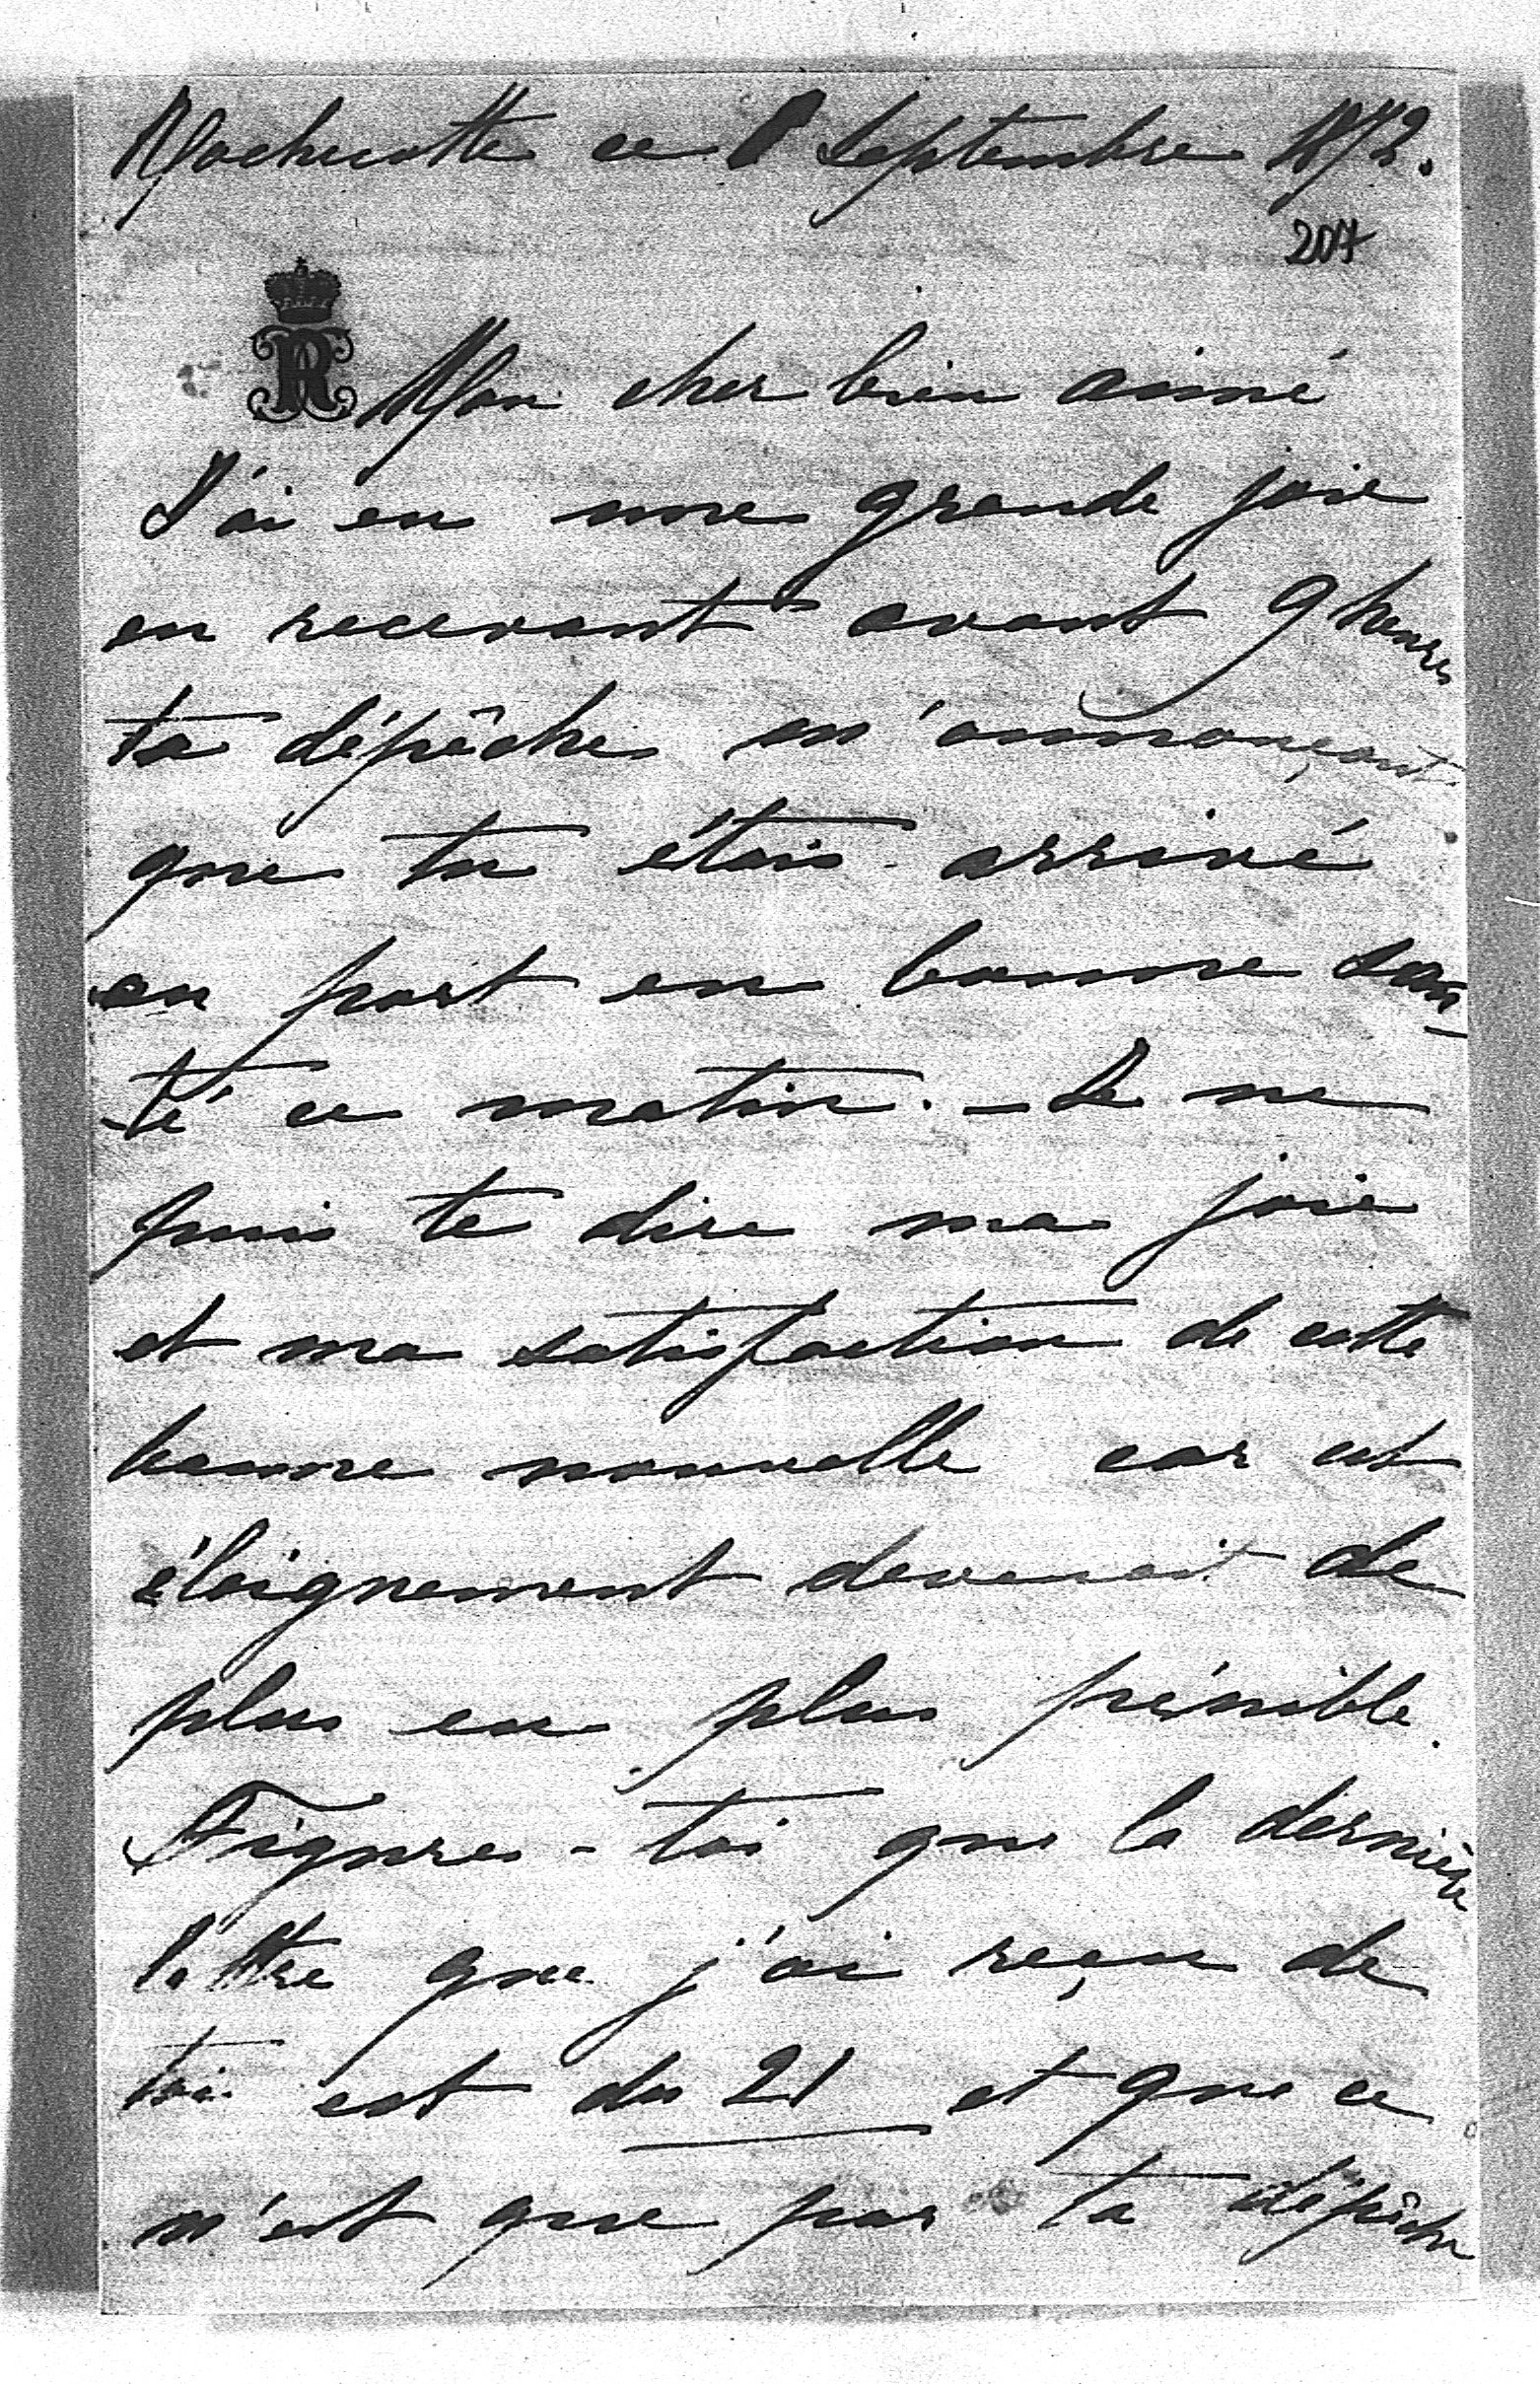 Rochecotte ce 8 Septembre 1872.
207
R
Mon cher bien aimé
J'ai eu une grande joie
en recevant avant 9 heures
ta dépêche m'annonçant
que tu étais arrivé
au port en bonne san-
-té ce matin. - Je ne
puis te dire ma joie
et ma satisfaction de cette
bonne nouvelle car cet
éloignement devenait de
plus en plus pénible.
Figures-toi que la dernière
lettre que j'ai reçu de
toi est du 21 et que ce
n'est que par ta dépêche